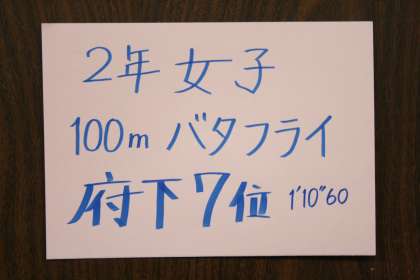 2年 女子
100m バタフライ
府下7位 1'10"60